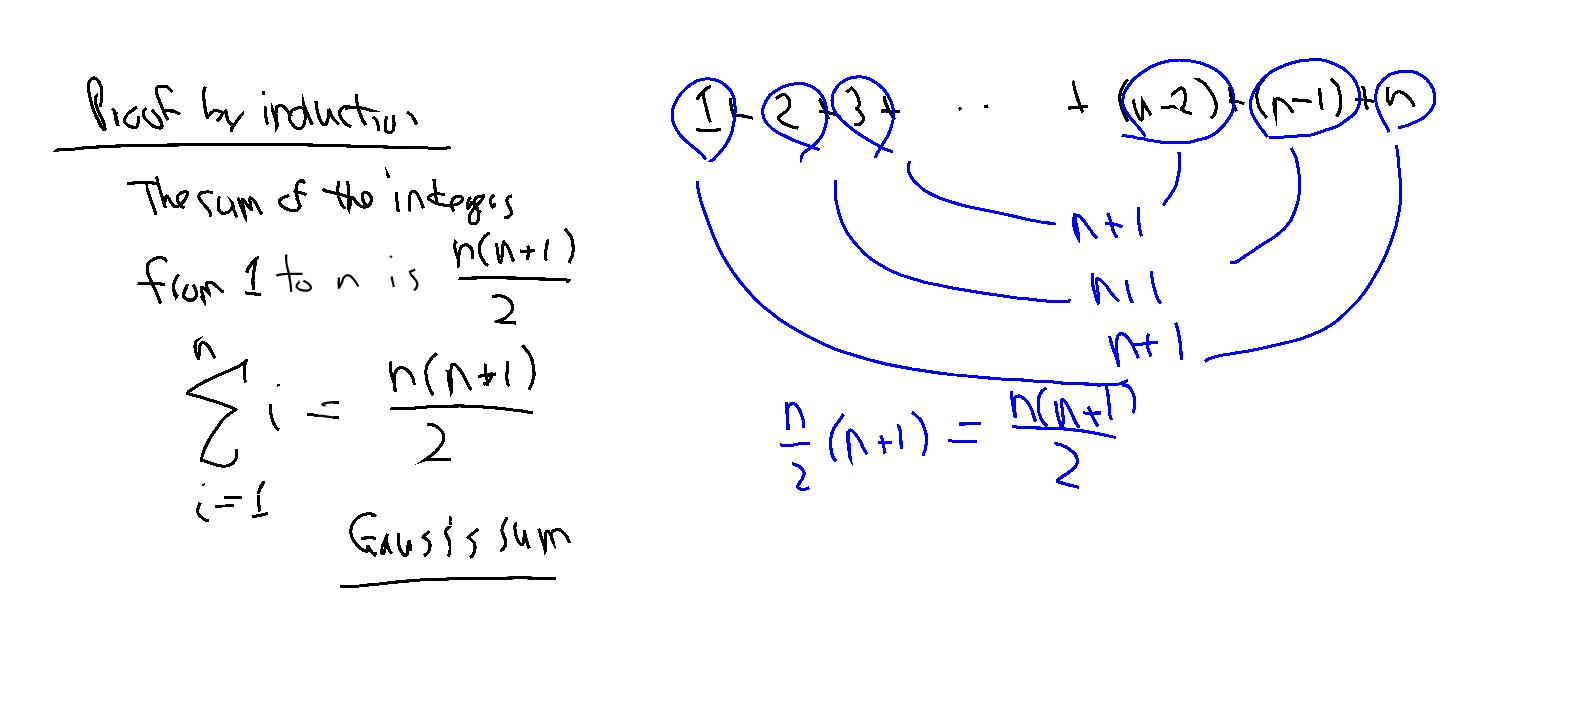 Proof by induction
The sum of the integers
from 1 to n is n(n+1)/2
n
∑ i = n(n+1)/2
i=1
Gauss's sum
1 + 2 + 3 + ... + (n-2) + (n-1) + n
n+1
n+1
n+1
n/2 (n+1) = n(n+1)/2